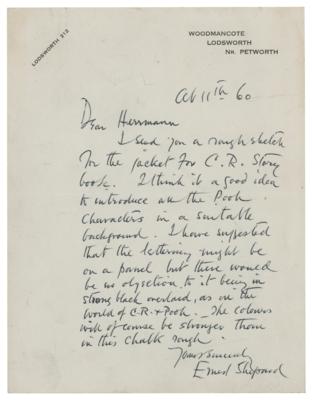 LODSWORTH 212
WOODMANCOTE
LODSWORTH
NR. PETWORTH
Oct 11th 60
Dear Herrmann
I send you a rough sketch
for the jacket for C. R. Story
book. I think it a good idea
to introduce all the Pooh
characters in a suitable
background. I have suggested
that the lettering might be
on a panel but there would
be no objection to it being in
strong black overlaid, as on the
World of C.R. + Pooh. The colours
will of course be stronger than
in this chalk rough.
Yours sincerely
Ernest Shepard